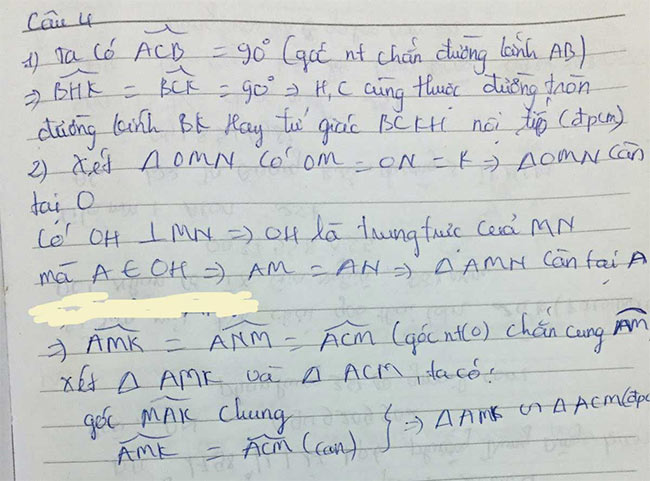 Câu 4
1) Ta có ACB = 90° (góc nt chắn đường kính AB)
=> BHK = BCK = 90° => H, C cùng thuộc đường tròn
đường kính BK Hay tứ giác BCKH nội tiếp (đpcm)
2) Xét ΔOMN có OM = ON = R => ΔOMN cân
tại O
Có OH ⊥ MN => OH là trung trực của MN
mà A ∈ OH => AM = AN => ΔAMN cân tại A
=> AMK = ANM = ACM (góc nt(O) chắn cung AM
xét Δ AMK và Δ ACM, ta có:
góc MAK chung
AMK = ACM (cmt) } => ΔAMK ∽ ΔACM (đpc